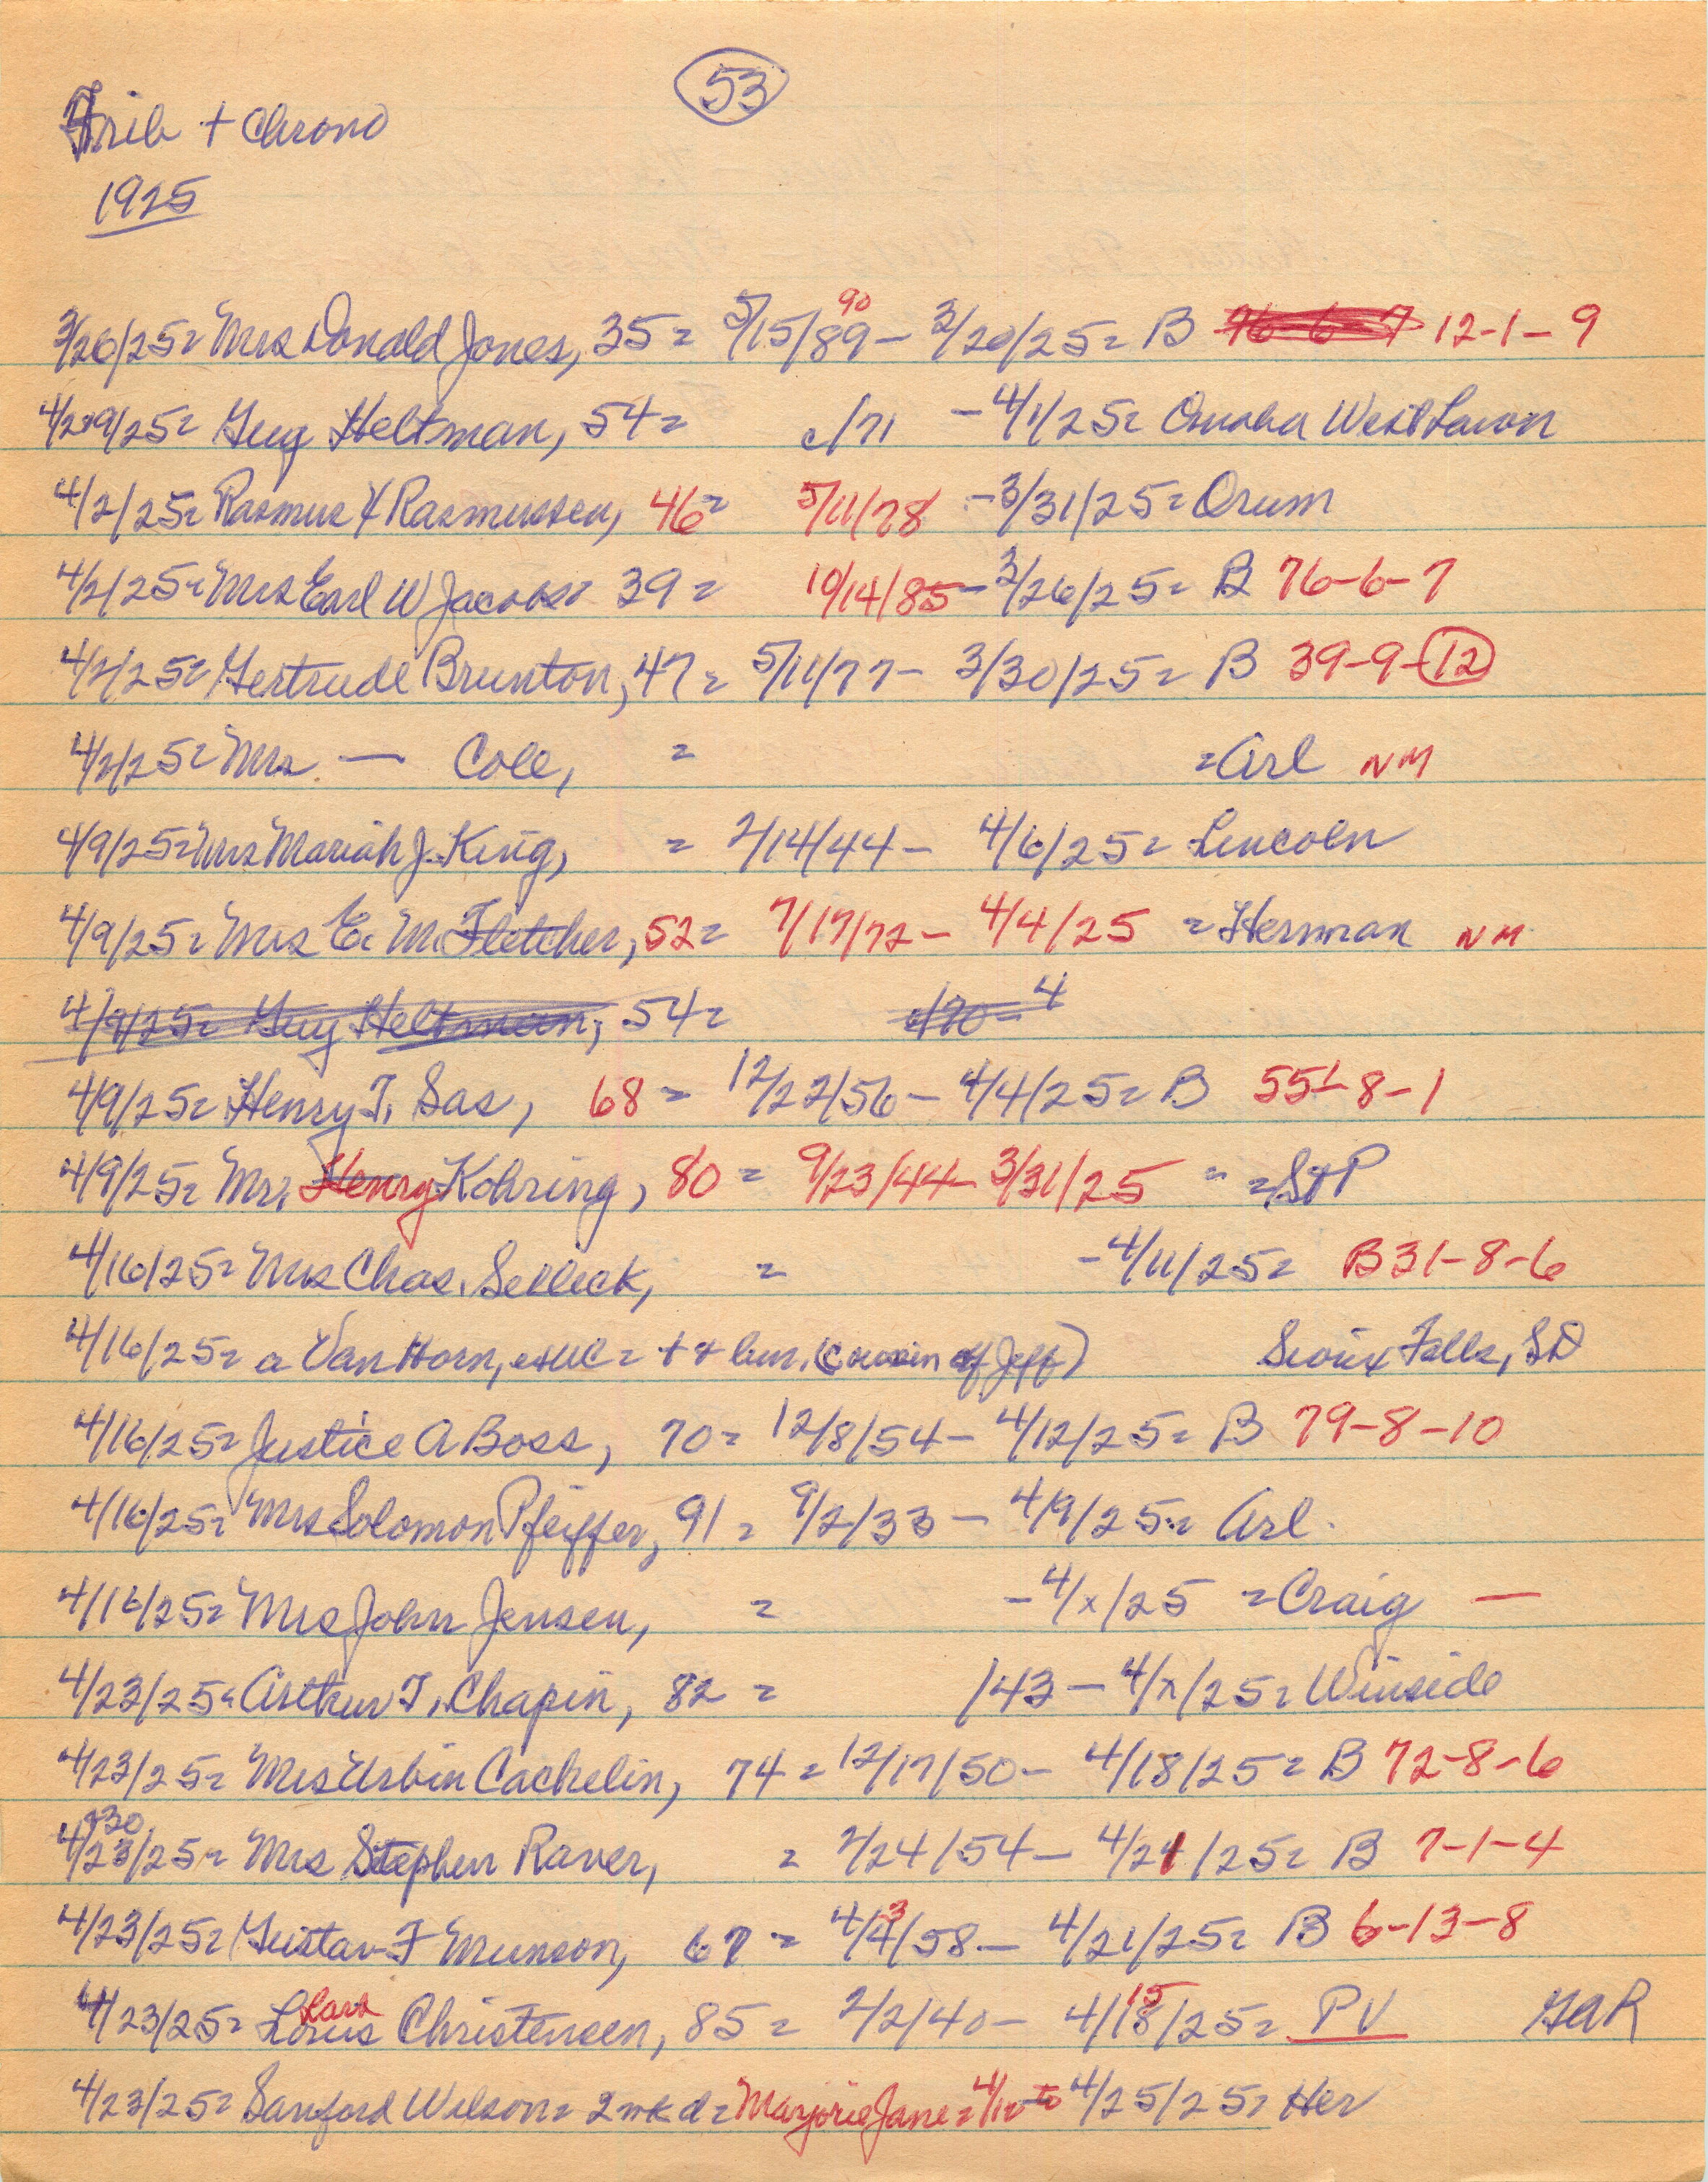 53
Trib + Chrono
1925
3/26/25= Mrs Donald Jones, 35= 5/15/89 90 - 3/20/25= B 76-6-7 12-1-9
4/2+9/25= Guy Heltman, 54= c/71 - 4/1/25= Omaha West Lawn
4/2/25= Rasmus Y Rasmussen, 46= 5/11/78 - 3/31/25= Orum
4/2/25= Mrs Earl W Jacobs 39= 10/14/85 - 3/26/25= B 76-6-7
4/2/25= Gertrude Brunton, 47= 5/11/77 - 3/30/25= B 39-9-12
4/2/25= Mrs. — Cole, = =Arl NM
4/9/25= Mrs Mariah J. King, = 2/14/44 - 4/6/25= Lincoln
4/9/25= Mrs E. M. Fletcher, 52= 7/17/72 - 4/4/25 = Herman NM
4/9/25= Guy Heltman, 54= c/70 - 4
4/9/25= Henry T. Sas, 68 = 12/22/56 - 4/4/25= B 55-8-1
4/9/25= Mrs. Henry Kohring, 80 = 9/23/44 - 3/31/25 = =St P
4/16/25= Mrs Chas. Selleck, = - 4/11/25= B 31-8-6
4/16/25= a Van Horn, = + + bur. (cousin of Jeff) Sioux Falls, SD
4/16/25= Justice A Boss, 70= 12/8/54 - 4/12/25= B 79-8-10
4/16/25= Mrs Solomon Pfeiffer, 91 = 9/2/33 - 4/9/25= Arl.
4/16/25= Mrs John Jensen, = - 4/x/25 = Craig —
4/23/25= Arthur T. Chapin, 82 = /43 - 4/x/25= Winside
4/23/25= Mrs Urbin Cachelin, 74 = 12/17/50 - 4/18/25= B 72-8-6
4/23+30/25= Mrs Stephen Raver, = 2/24/54 - 4/21/25= B 7-1-4
4/23/25= Gustav F Munson, 67 = 4/4 3/58 - 4/21/25= B 6-13-8
4/23/25= Lorus Lars Christensen, 85= 2/2/40 - 4/18 15/25= PV GAR
4/23/25= Sanford Wilson= 2 wk d= Marjorie Jane = 4/10 to 4/25/25= Her